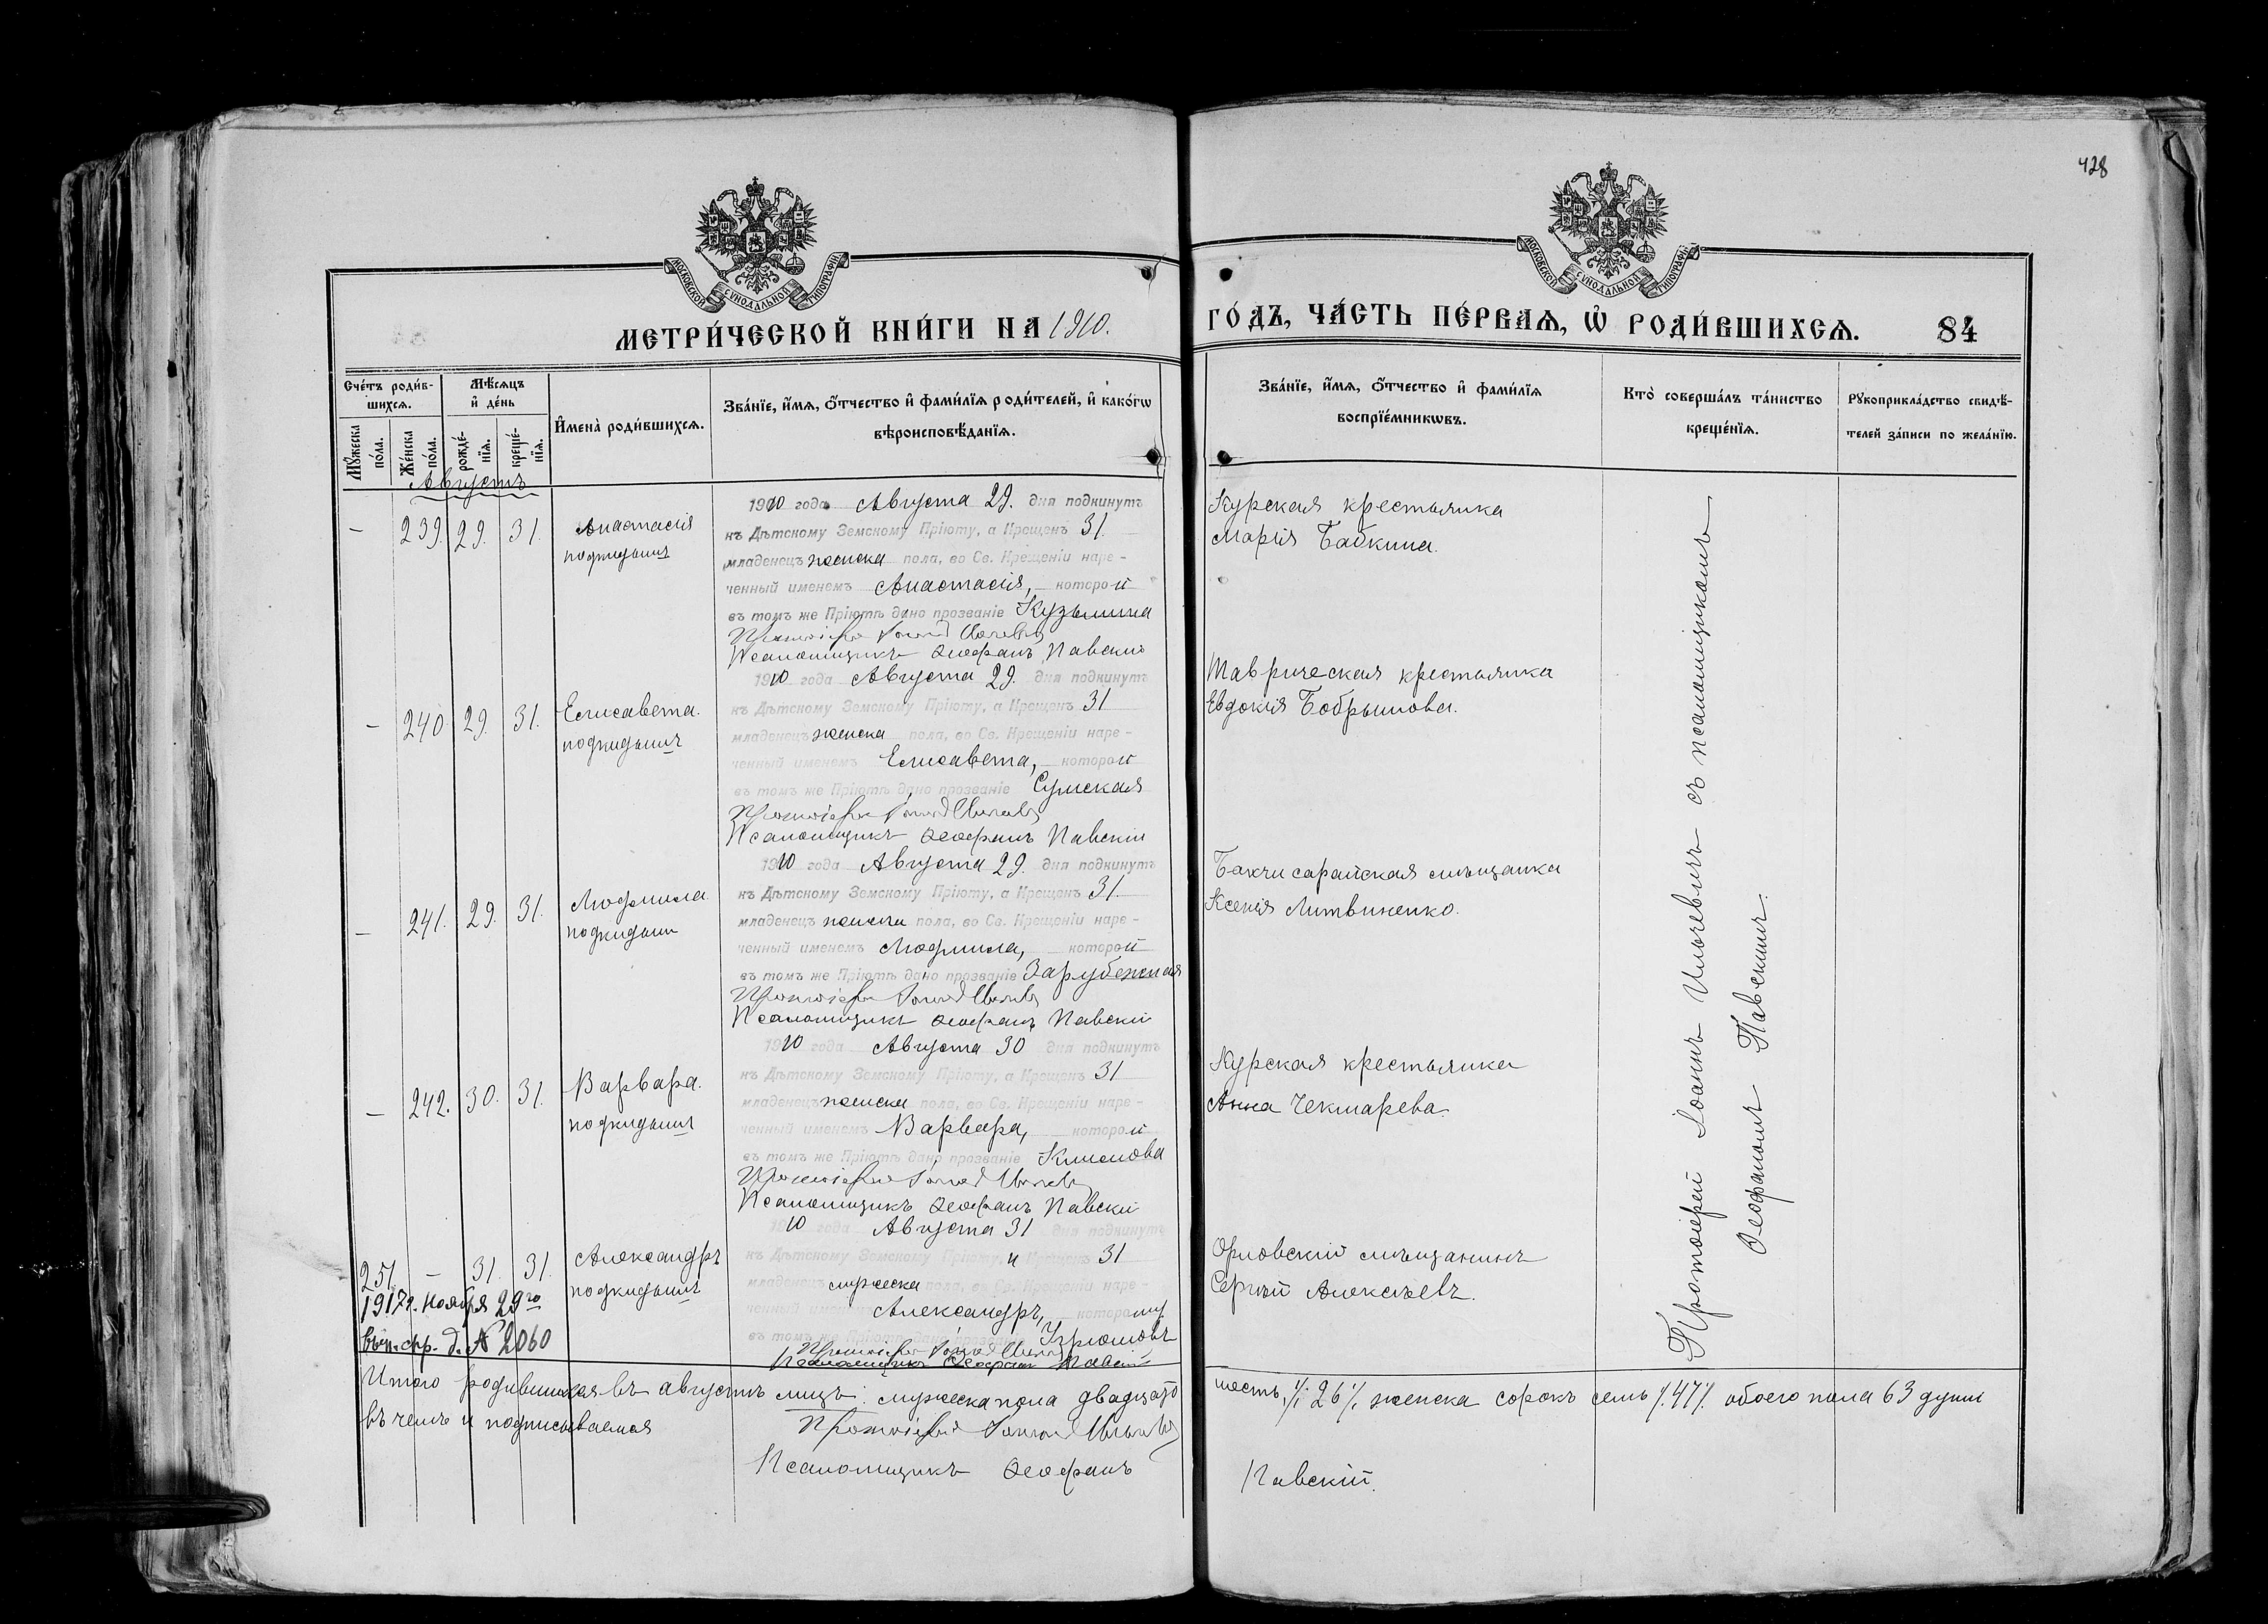 428
МОСКОВСКОЙ СѴНОДАЛЬНОЙ ТИПОГРАФІИ
МОСКОВСКОЙ СѴНОДАЛЬНОЙ ТИПОГРАФІИ
МЕТРИ́ЧЕСКОЙ КНИ́ГИ НА 1910.
ГО́ДЪ, ЧА́СТЬ ПЕ́РВАѦ, Ѽ РОДИ́ВШИХСѦ. 84
Сче́тъ роди́в-
шихсѧ.
Мꙋ́жеска по́ла.
Же́нска по́ла.
Мѣ́сѧцъ
и҆ де́нь
рожде́-
нїѧ.
креще́-
нїѧ.
И҆мена̀ роди́вшихсѧ.
Зва́нїе, и҆́мѧ, ѻ҆́тчество и҆ фами́лїѧ роди́телей, и҆ како́гѡ
вѣроисповѣ́данїѧ.
Зва́нїе, и҆́мѧ, ѻ҆́тчество и҆ фами́лїѧ
воспрїе́мникѡвъ.
Кто̀ соверша́лъ та́инство
креще́нїѧ.
Рꙋкоприкла́дство свидѣ́-
телей за́писи по жела́нїю.
Августъ
– 239. 29. 31. Анастасія
подкидышъ
1910 года Августа 29. дня подкинутъ
къ Дѣтскому Земскому Пріюту, а Крещенъ 31.
младенецъ женска пола, во Св. Крещеніи наре-
ченный именемъ Анастасія, которой
въ томъ же Пріютѣ дано прозваніе Кузьмина
Протоіерей Іоаннъ
Псаломщикъ Ѳеофанъ Павскій
Курская крестьянка
Марія Бабкина.
– 240 29. 31. Елисавета.
подкидышъ
1910 года Августа 29. дня подкинутъ
къ Дѣтскому Земскому Пріюту, а Крещенъ 31
младенецъ женска пола, во Св. Крещеніи наре-
ченный именемъ Елисавета, которой
въ томъ же Пріютѣ дано прозваніе Сумская
Протоіерей Іоаннъ
Псаломщикъ Ѳеофанъ Павскій
Таврическая крестьянка
Евдокія Бобрышова.
– 241. 29. 31. Людмила
подкидыш
1910 года Августа 29. дня подкинутъ
къ Дѣтскому Земскому Пріюту, а Крещенъ 31.
младенецъ женска пола, во Св. Крещеніи наре-
ченный именемъ Людмила, которой
въ томъ же Пріютѣ дано прозваніе Зарубежная
Протоіерей Іоаннъ
Псаломщикъ Ѳеофанъ Павскій
Бахчисарайская мѣщанка
Ксенія Литвиненко.
– 242. 30. 31. Варвара.
подкидышъ
1910 года Августа 30 дня подкинутъ
къ Дѣтскому Земскому Пріюту, а Крещенъ 31
младенецъ женска пола, во Св. Крещеніи наре-
ченный именемъ Варвара, которой
въ томъ же Пріютѣ дано прозваніе Климова
Протоіерей Іоаннъ
Псаломщикъ Ѳеофанъ Павскій
Курская крестьянка
Анна Чекмарева.
251. – 31. 31. Александръ
подкидышъ
1917 г. Ноября 29го
вып. спр. д. № 2060
1910 года Августа 31 дня подкинутъ
къ Дѣтскому Земскому Пріюту, и Крещенъ 31
младенецъ мужеска пола, во Св. Крещеніи наре-
ченный именемъ Александръ, которому
въ томъ же Пріютѣ дано прозваніе Угрюмовъ
Протоіерей Іоаннъ
Псаломщикъ Ѳеофанъ Павскій
Орловскій мѣщанинъ
Сергѣй Алексѣевъ.
Протоіерей Іоаннъ Ильичевичъ съ псаломщикомъ
Ѳеофаномъ Павскимъ.
Итого родившихся въ августѣ мцѣ: мужеска пола двадцать шесть /26/, женска сорокъ семь /47/ обоего пола 63 души
въ чемъ и подписываемся
Протоіерей Іоаннъ
Псаломщикъ Ѳеофанъ Павскій.